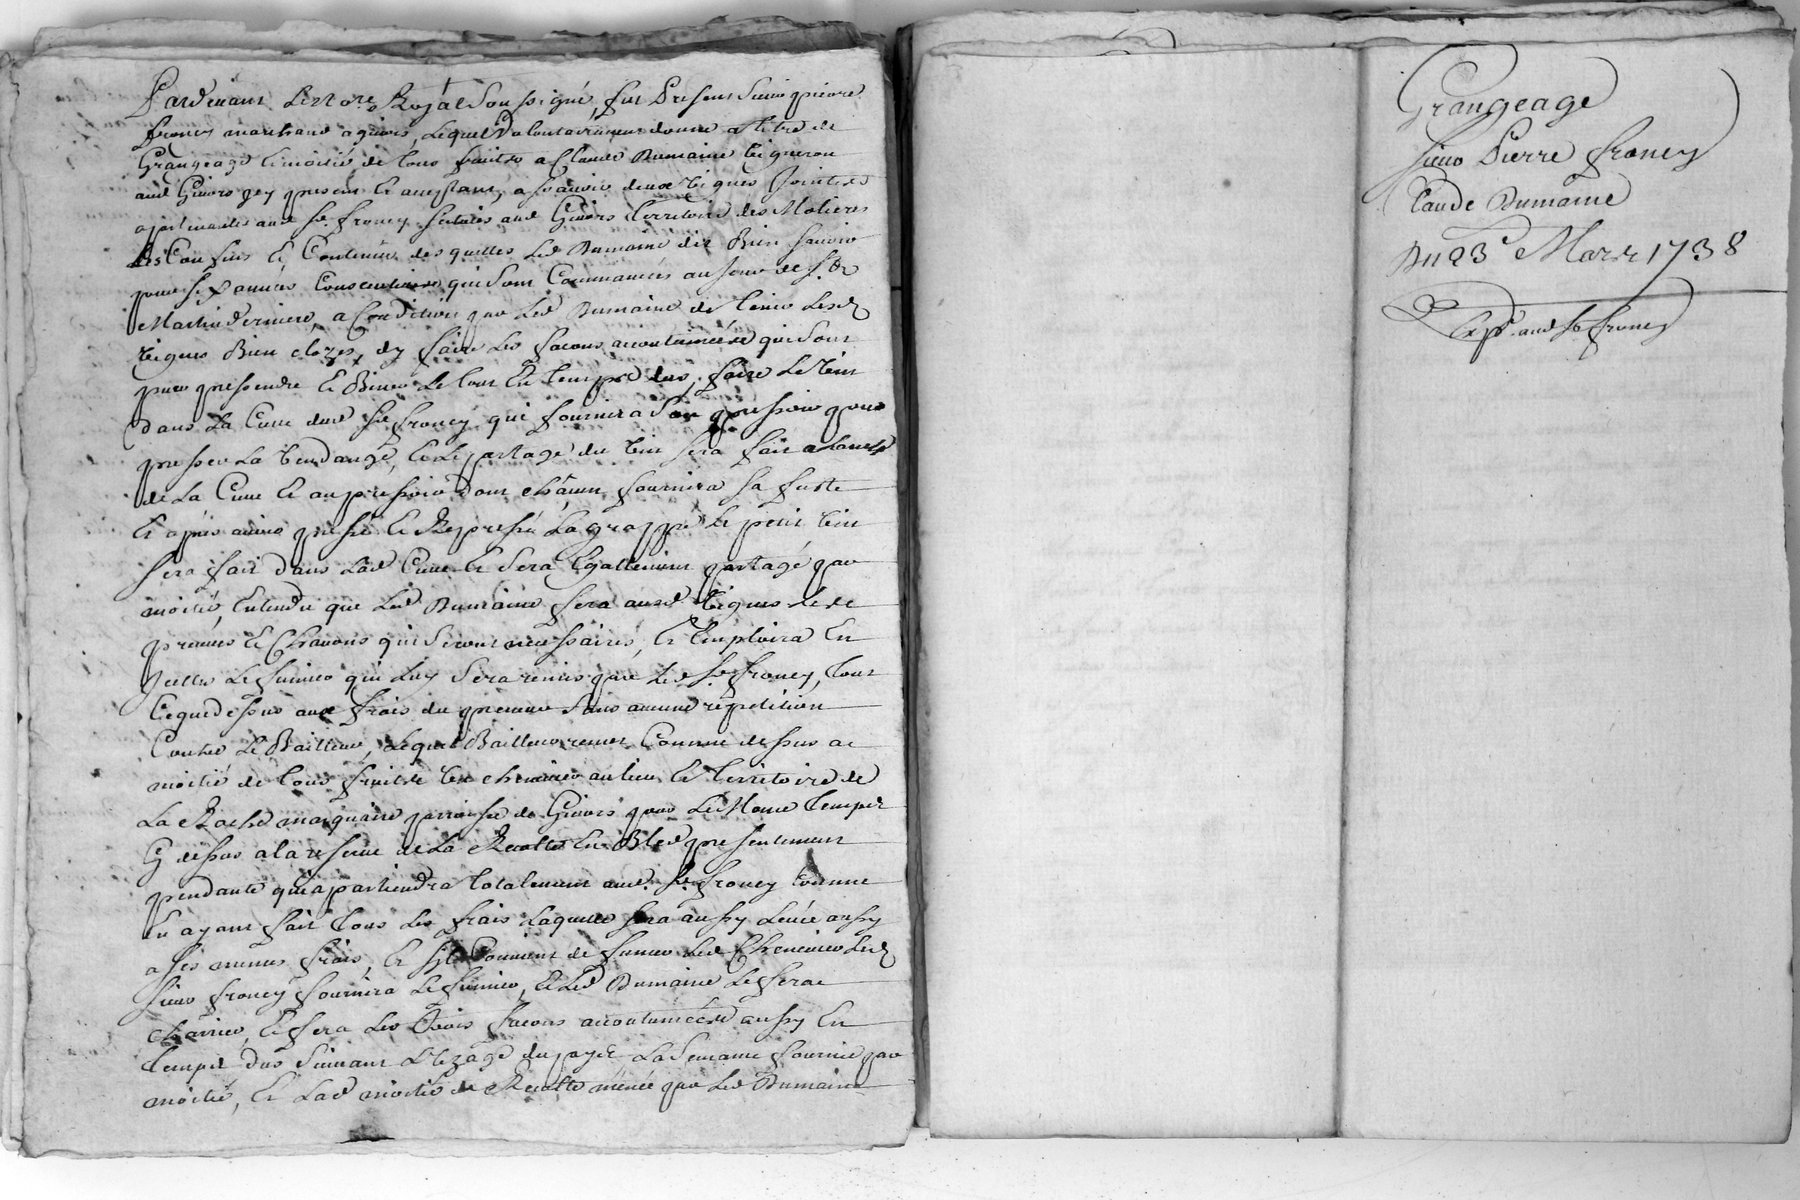 Pardevant Le no.re Royal Soussigné, fut Present Sieur pierre
froney marchand a givors, Lequel Volontairement donne a titre de
Grangeage Et moitié de tous fruits a Claude Dumaine Vigneron
aud Givors Icy present Et acceptant, a sçavoir deux Vignes Jointes
apartenantes aud Sr. froney scituées aud Givors Territoire des Molieres
Les Confins Et Contenüe desquelles Led Dumaine dit Bien sçavoir
pour six années Consecutives qui sont Commancées au Jour de St
Martin dernier, a Condition que Led Dumaine de tenir Lesd
Vignes Bien clozes, d'y faire Les facons accoutumées qui sont
Et Biner Le tout En temps dus, faire Le Vin
dans La Cuve dud Sr froney qui fournira Son pressoir pour
presser La Vendange, Et Le partage du Vin sera fait a
de La Cuve Et au pressoir dont châcun fournira sa futte
Et après avoir pressé Et Repressé La grappe Le petit Vin
sera fait dans Lad Cuve Et Sera Egallement partagé par
moitié, Entendu que Led Dumaine fera auxd Vignes Les
preuves Et Chavons qui seront necessaires, Et Emploira En
Icelles Le fumier qui Luy Sera remis par Led Sr froney, tout
Ce que dessus aux frais du preneur Sans aucune repetition
Contre Le Bailleur, Lequel Bailleur remet Comme dessus a
moitié de tous fruits Une chenevier au lieu Et Territoire de
La Roche parroisse de Givors pour Le Meme Temps
Cy dessus a la reserve de La Recolte En Bled presentement
pendante qui apartiendra totalement aud. Sr. froney Comme
En ayant fait tous Les frais Laquelle sera aussy Levée aussy
a ses memes frais, Et s'Il Convient de fumer Led Chenevier Led
sieur froney fournira Le fumier, Et Led Dumaine Le fera
charier, Et fera Les trois facons accoutumées aussy En
temps dus Suivant L'Uzage du païs La Semance fournie par
moitié, Et Lad moitié de Recolte menée par Led Dumaine
Grangeage
Sieur Pierre froney
Claude Dumaine
Du 23e Mars 1738
Exp.é aud Sr froney